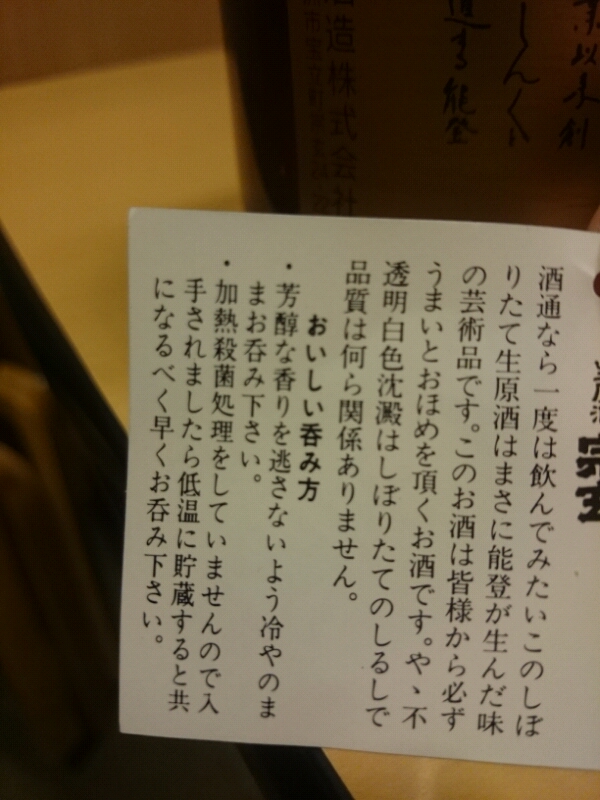 宗玄
酒通なら一度は飲んでみたいこのしぼ
りたて生原酒はまさに能登が生んだ味
の芸術品です。このお酒は皆様から必ず
うまいとおほめを頂くお酒です。やゝ不
透明白色沈澱はしぼりたてのしるしで
品質は何ら関係ありません。
おいしい呑み方
・芳醇な香りを逃さないよう冷やのま
まお呑み下さい。
・加熱殺菌処理をしていませんので入
手されましたら低温に貯蔵すると共
になるべく早くお呑み下さい。
能登
造株式会社